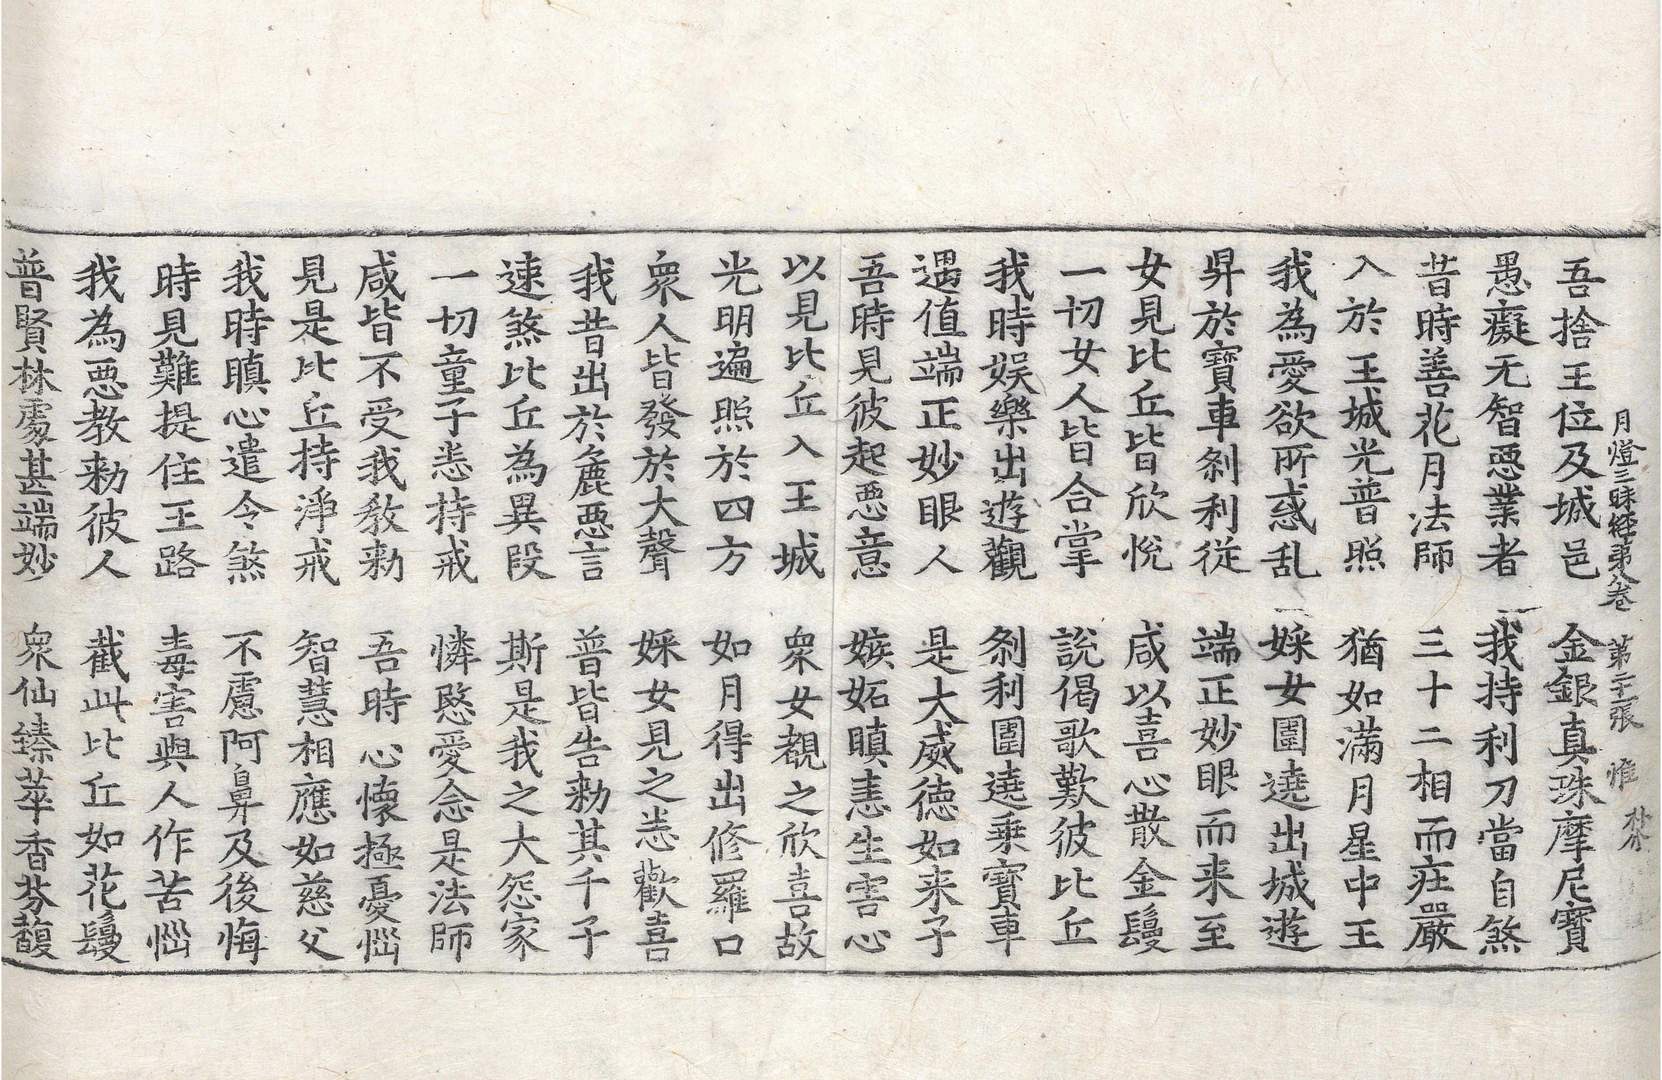 月燈三昧経第八卷 第二十二張 惟
吾捨王位及城邑 金銀真珠摩尼寶
愚癡无智惡業者 我持利刀當自煞
昔時善花月法師 三十二相而莊嚴
入於王城光普照 猶如滿月星中王
我為愛欲所惑乱 婇女圍遶出城遊
昇於寶車剎利從 端正妙眼而来至
女見比丘皆欣悅 咸以喜心散金鬘
一切女人皆合掌 說偈歌歎彼比丘
我時娛樂出遊觀 剎利圍遶乗寶車
遇值端正妙眼人 是大威德如来子
吾時見彼起惡意 嫉妬瞋恚生害心
以見比丘入王城 衆女覩之欣喜故
光明遍照於四方 如月得出修羅口
衆人皆發於大聲 婇女見之悉歡喜
我昔出於麁惡言 普皆告勑其千子
速煞比丘為異段 斯是我之大怨家
一切童子悉持戒 憐愍愛念是法師
咸皆不受我教勑 吾時心懷極憂惱
見是比丘持淨戒 智慧相應如慈父
我時瞋心遣令煞 不慮阿鼻及後悔
時見難提住王路 毒害與人作苦惱
我為惡教勑彼人 截此比丘如花鬘
普賢林處甚端妙 衆仙臻萃香芬馥